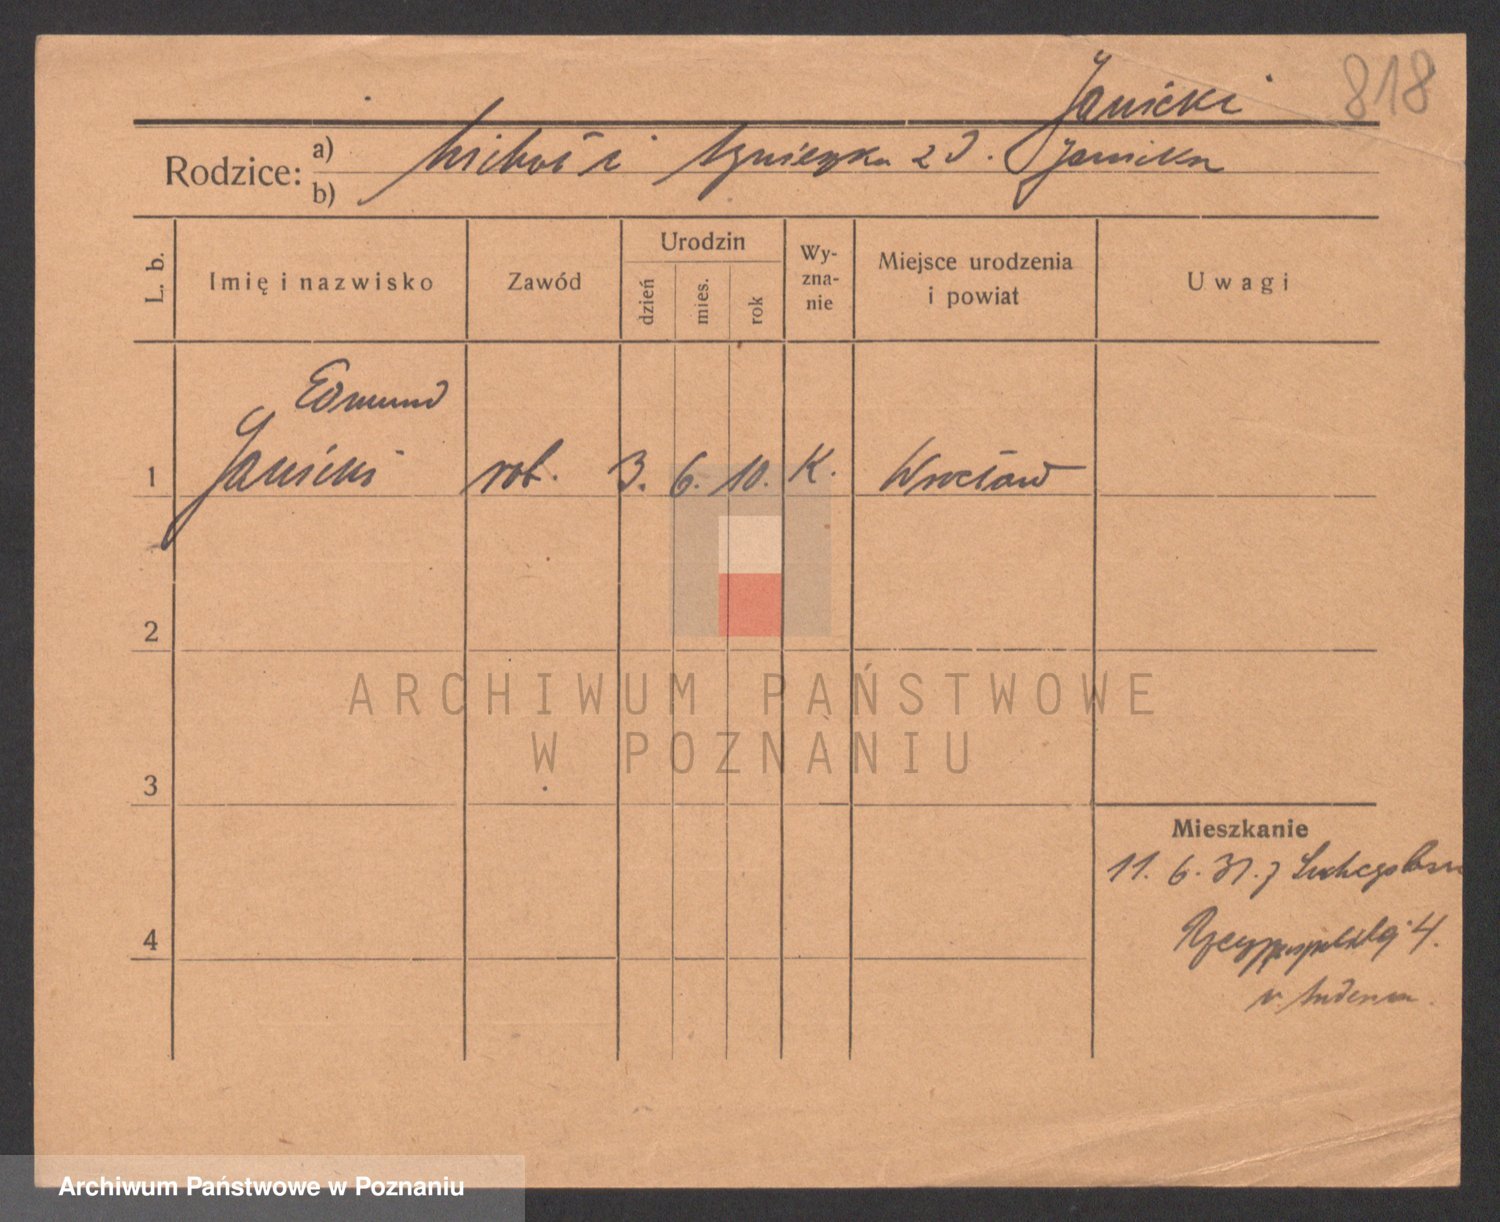 818
Janicki
Rodzice: a) Michał i Agnieszka z d. Janicka
b)
L. b. Imię i nazwisko Zawód Urodzin dzień mies. rok Wy-zna-nie Miejsce urodzenia i powiat Uwagi
Edmund
1 Janicki rob. 3. 6. 10. K. Wrocław
2
ARCHIWUM PAŃSTWOWE
W POZNANIU
3
Mieszkanie
11. 6. 31. z
4
4.
Archiwum Państwowe w Poznaniu